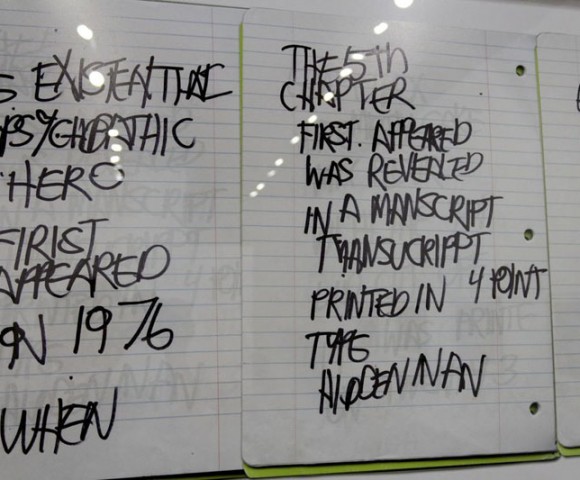 S EXISTENTIAL
PSYCHOPATHIC
HERO
FIRIST
APPEARED
ON 1976
WHEN
THE 5th
CHAPTER
FIRST. APPEARED
WAS REVEALED
IN A MANSCRIPT
PRINTED IN 4 POINT
TYPE
HIDDEN IN AN